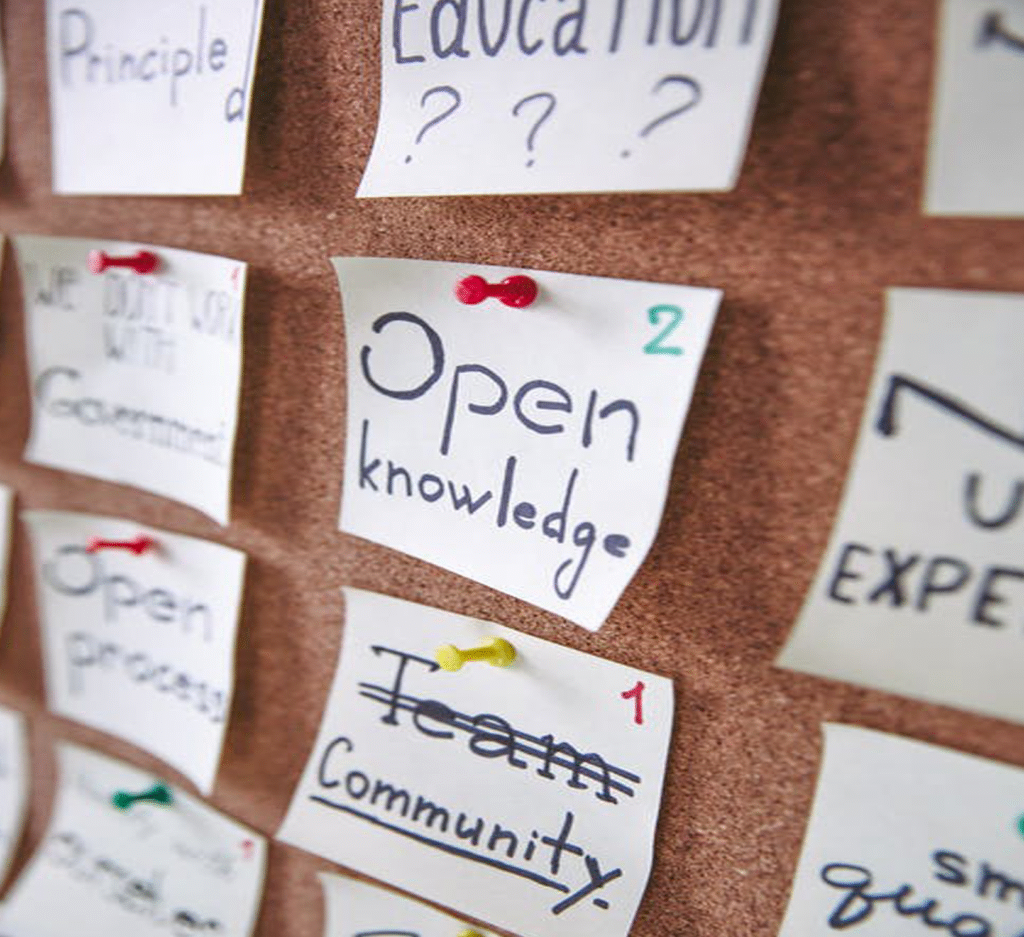 Principle
d
Education
? ? ?
1
WE DON'T WORK
WITH
Government
2
Open
knowledge
U
EXPE
Open
process
1
Team
Community
1
sm
qua